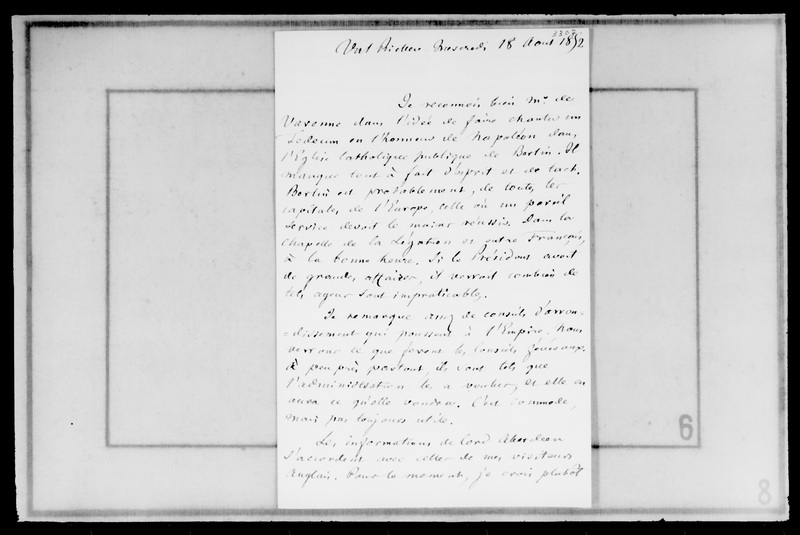 3307
Val Richer Mercredi 18 Aout 1852
Je reconnais bien Mr de
Varenne dans l'idée de faire chanter un
Tedeum en l'honneur de Napoléon dans
l'Eglise Catholique publique de Berlin. Il
manque tout à fait d'esprit et de tact.
Berlin est probablement, de toutes les
capitales de l'Europe, celle où un pareil
service devait le moins réussir. Dans la
Chapelle de la Légation et entre Français,
à la bonne heure. Si le Président avait
de grandes affaires, il verrait combien de
tels agens sont impraticables.
Je remarque assez de conseils d'arron-
-dissement qui poussent à l'Empire. Nous
verrons ce que feront les Conseils généraux.
A peu près partout, ils sont tels que
l'administration les a voulus, et elle en
aura ce qu'elle voudra. C'est commode,
mais pas toujours utile.
Les informations de lord Aberdeen
s'accordent avec celles de mes visiteurs
Anglais. Pour le moment, je crois plutôt
6
8